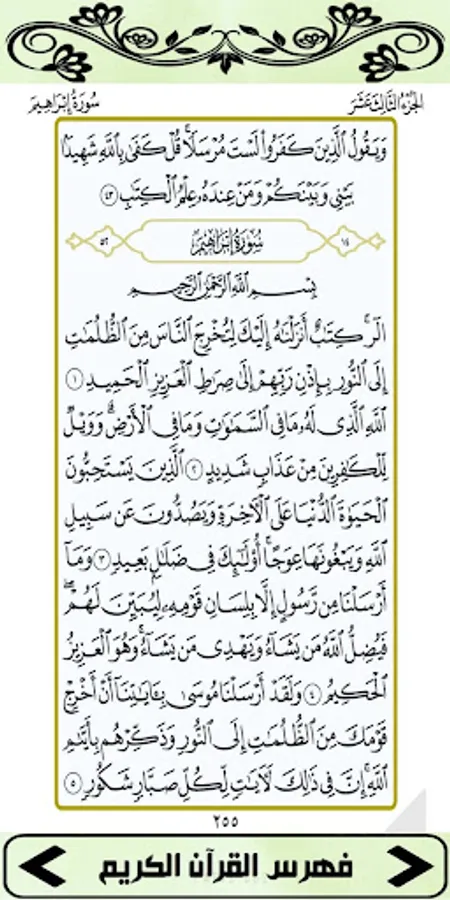 سُورَةُ إِبْرَاهِيمَ
الجُزْءُ الثَّالِثَ عَشَرَ
وَيَقُولُ الَّذِينَ كَفَرُوا۟ لَسْتَ مُرْسَلًا ۚ قُلْ كَفَىٰ بِاللَّهِ شَهِيدًۢا
بَيْنِى وَبَيْنَكُمْ وَمَنْ عِندَهُۥ عِلْمُ الْكِتَٰبِ ٤٣
١٤ سُورَةُ إِبْرَاهِيمَ ٥٢
بِسْمِ اللَّهِ الرَّحْمَٰنِ الرَّحِيمِ
الٓر ۚ كِتَٰبٌ أَنزَلْنَٰهُ إِلَيْكَ لِتُخْرِجَ النَّاسَ مِنَ الظُّلُمَٰتِ
إِلَى النُّورِ بِإِذْنِ رَبِّهِمْ إِلَىٰ صِرَٰطِ الْعَزِيزِ الْحَمِيدِ ١
اللَّهِ الَّذِى لَهُۥ مَا فِى السَّمَٰوَٰتِ وَمَا فِى الْأَرْضِ ۗ وَوَيْلٌ
لِّلْكَٰفِرِينَ مِنْ عَذَابٍ شَدِيدٍ ٢ الَّذِينَ يَسْتَحِبُّونَ
الْحَيَوٰةَ الدُّنْيَا عَلَى الْءَاخِرَةِ وَيَصُدُّونَ عَن سَبِيلِ
اللَّهِ وَيَبْغُونَهَا عِوَجًا ۚ أُو۟لَٰٓئِكَ فِى ضَلَٰلٍۭ بَعِيدٍ ٣ وَمَآ
أَرْسَلْنَا مِن رَّسُولٍ إِلَّا بِلِسَانِ قَوْمِهِۦ لِيُبَيِّنَ لَهُمْ ۖ
فَيُضِلُّ اللَّهُ مَن يَشَآءُ وَيَهْدِى مَن يَشَآءُ ۚ وَهُوَ الْعَزِيزُ
الْحَكِيمُ ٤ وَلَقَدْ أَرْسَلْنَا مُوسَىٰ بِـَٔايَٰتِنَآ أَنْ أَخْرِجْ
قَوْمَكَ مِنَ الظُّلُمَٰتِ إِلَى النُّورِ وَذَكِّرْهُم بِأَيَّىٰمِ
اللَّهِ ۚ إِنَّ فِى ذَٰلِكَ لَءَايَٰتٍ لِّكُلِّ صَبَّارٍ شَكُورٍ ٥
٢٥٥
فهرس القرآن الكريم